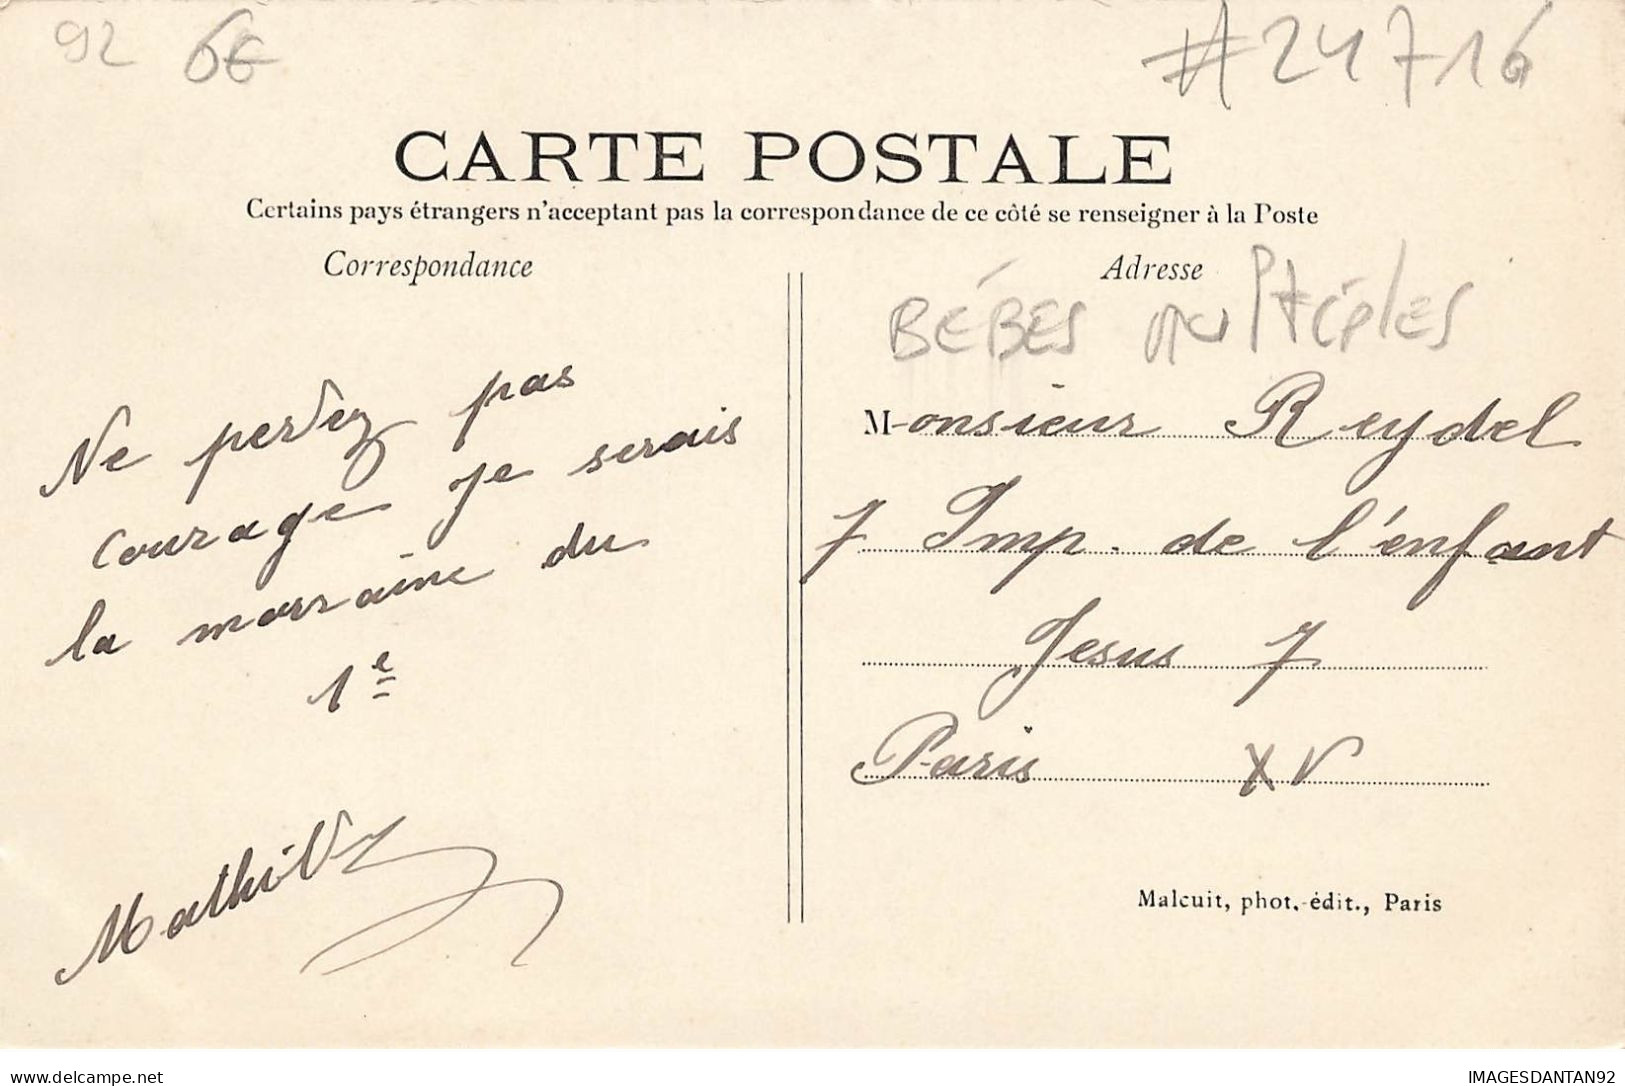 92 6€
#24716
CARTE POSTALE
Certains pays étrangers n'acceptant pas la correspondance de ce côté se renseigner à la Poste
Correspondance
Adresse
BÉBES multiples
Ne perdez pas
courage je serais
la marraine du
1e
Mathilde
Monsieur Reydel
7 Imp. de l'enfant
Jesus 7
Paris XV
Malcuit, phot.-édit., Paris
delcampe.net
IMAGESDANTAN92